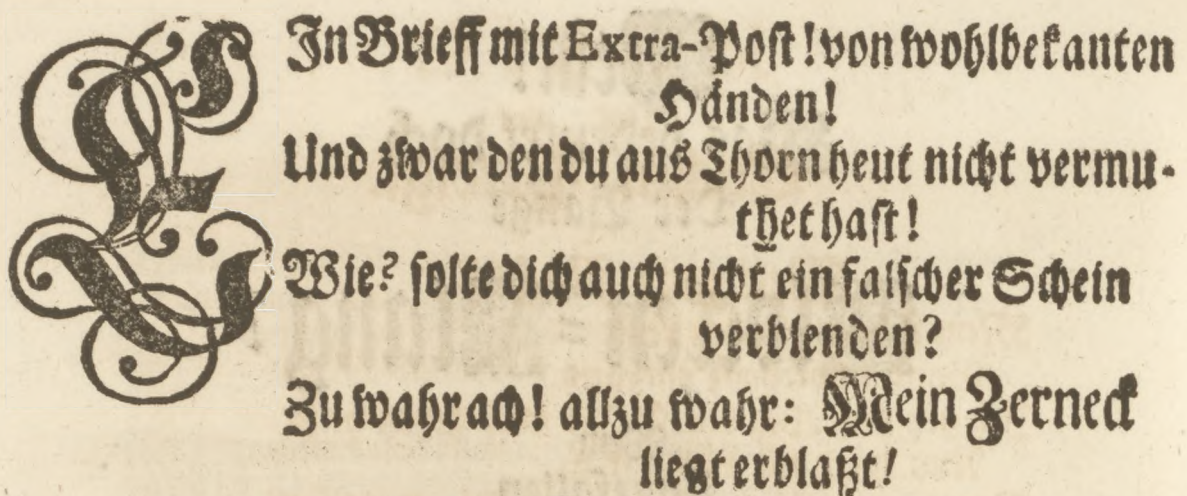 EIn Brieff mit Extra-Post! von wohlbekanten
Händen!
Und zwar den du aus Thorn heut nicht vermu-
thet hast!
Wie? solte dich auch nicht ein falscher Schein
verblenden?
Zu wahr ach! allzu wahr: Mein Zerneck
liegt erblaßt!